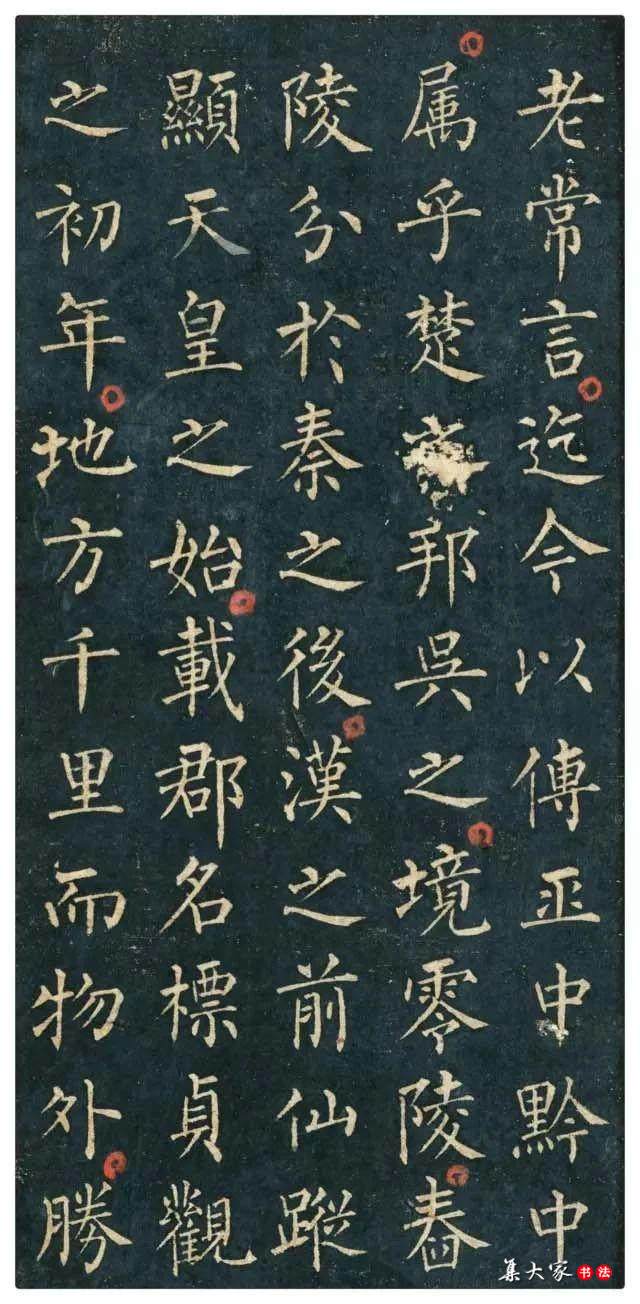 老常言迄今以傳申黔中
属乎楚邦吳之境零陵舂
陵分於秦之後漢之前仙蹤
顯天皇之始載郡名標貞觀
之初年地方千里而物外勝
集大家 书法